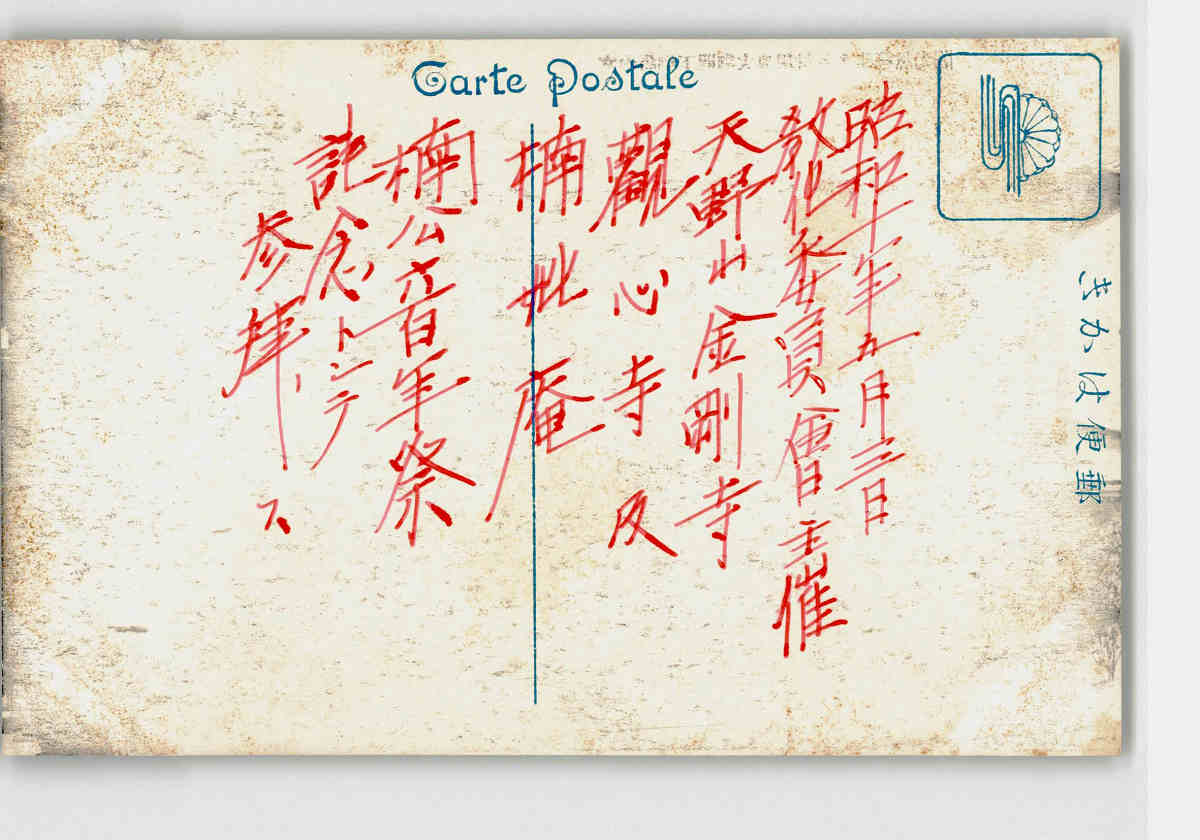 Carte Postale
きかは便郵
昭和十年五月三日
教化委員會主催
天野山金剛寺
觀心寺及
楠妣庵
楠公六百年祭
記念トシテ
参拜ス